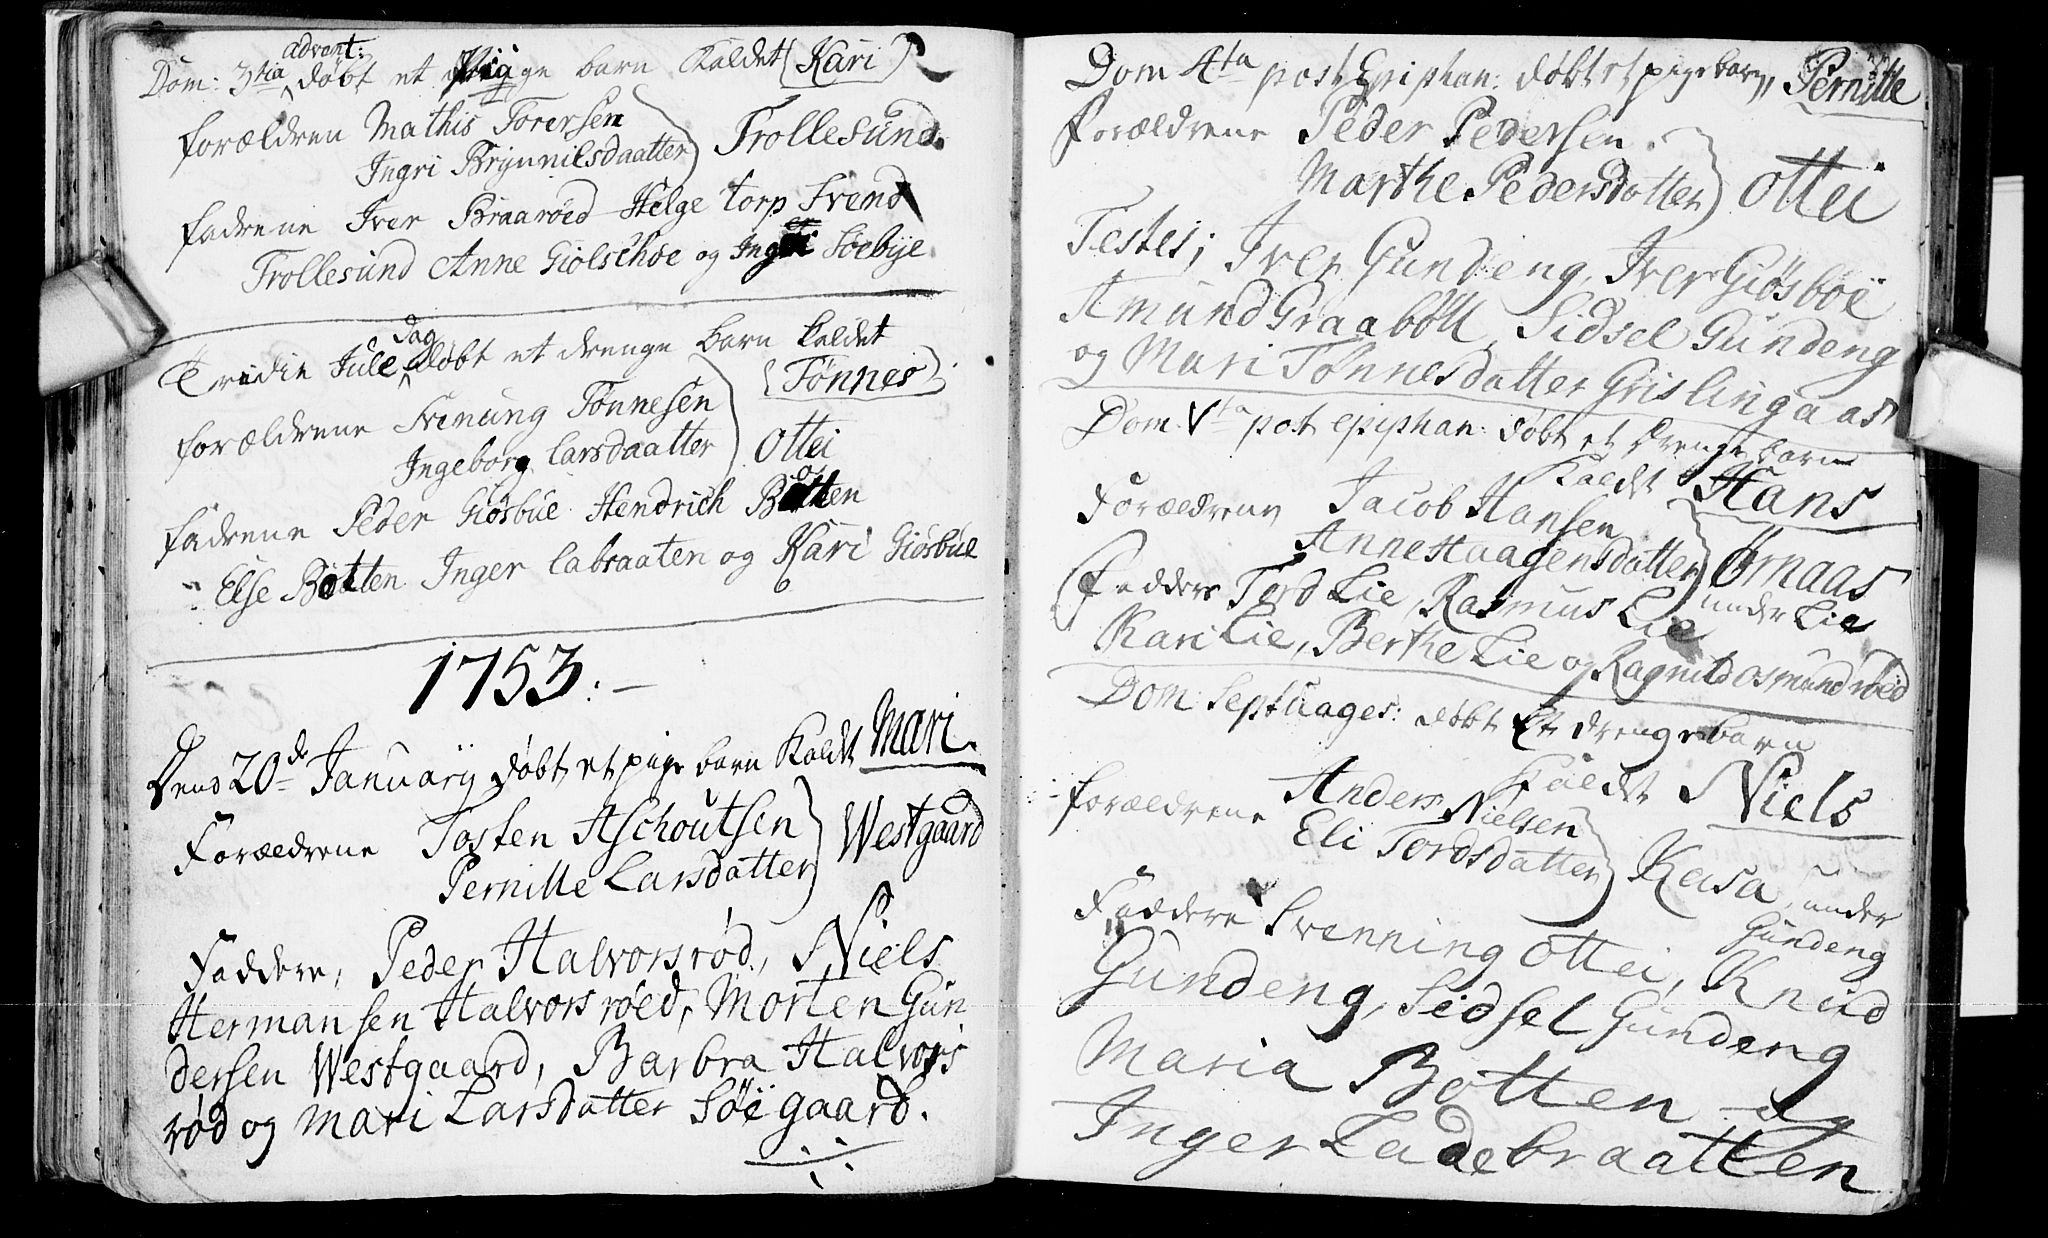 Dom: 3tia advent: døbt et pige barn kaldet (Kari)
forældren Mathis Torersen
Ingri Brynnilsdaatter Trollesund.
fadrene Iver Braarøed Helge torp Svend
Trollesund Anne Giølschøe og Inger Søebye
Tredie Jule dag døbt et drenge barn kaldet
(Tønnes)
forældrene Svenung Tønnesen
Ingeborg larsdaatter Ottei
fadrene Peder Giøsbüe Hendrich Botten
Else Botten Inger labraaten og Kari Giøsbüe
1753:-
Dend 20de January døbt et pige barn kaldt Mari.
Forældrene Tosten Aschoutsen
Pernille Larsdatter Westgaard
Faddere, Peder Halvorsrød, Niels
Hermansen Halvorsrøed, Morten Gun
dersen Westgaard, Barbra Halvors
rød og Mari Larsdatter Søe gaard.
Dom 4ta post Epiphan: døbt et pige barn, Pernille
Forældrene Peder Pedersen.
Marthe Pedersdatter Ottei
Testes; Iver Gundeng, Iver Giøsböe
Amund Graabøll, Sidsel Gundeng
og Mari Tønnesdatter Grislingaas
Dom. Vta post epiphan: døbt et drenge barn
kaldt Hans
Forældrene Jacob Hansen
Anne Haagensdatter Örnaas
under Lie
Faddere Tord Lie, Rasmus Lie
Kari Lie, Berthe Lie og Ragnild Osmundrøed
Dom: Septuages: døbt Et drenge barn
kaldt Niels
forældrene Anders Nielsen
Eli Tordsdatter Kasa, under
Gundeng
Faddere Svenning Ottei, Knud
Gundeng, Sidsel Gundeng
Maria Botten og
Inger Ladebraatten